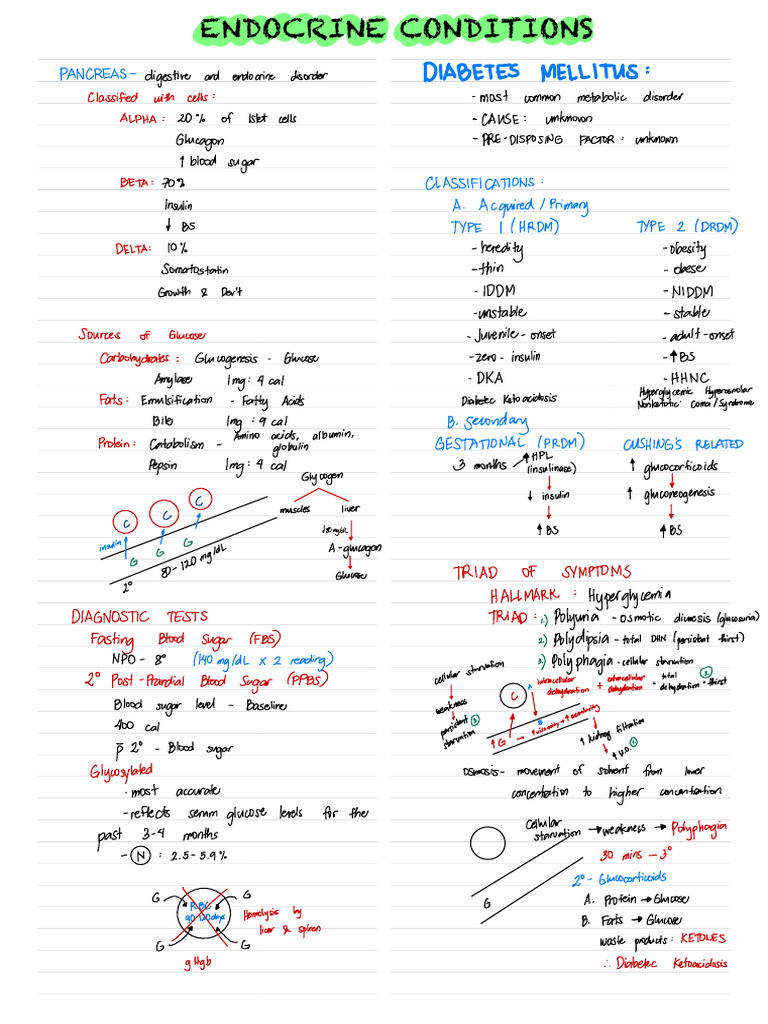 ENDOCRINE CONDITIONS
PANCREAS - digestive and endocrine disorder
Classified with cells:
ALPHA: 20% of Islet cells
Glucagon
↑ blood sugar
BETA: 70%
Insulin
↓ BS
DELTA: 10%
Somatostatin
Growth & Dev't
Sources of Glucose
Carbohydrates: Glucogenesis - Glucose
Amylase 1mg: 4 cal
Fats: Emulsification - Fatty Acids
Bile 1mg: 9 cal
Protein: Catabolism - Amino acids, albumin, globulin
Pepsin 1mg: 4 cal
Glycogen
muscles liver
↓80mg/dL
A-glucagon
Glucose
C C C
insulin
G G G
80-120 mg/dL
2°
DIAGNOSTIC TESTS
Fasting Blood Sugar (FBS)
NPO - 8° (140 mg/dL x 2 reading)
2° Post-Prandial Blood Sugar (PPBS)
Blood sugar level - Baseline
400 cal
p̄ 2° - Blood sugar
Glycosylated
- most accurate
- reflects serum glucose levels for the
past 3-4 months
- N : 2.5-5.9%
G G
RBC
90-120 days
G G
Hemolysis by
liver & spleen
g Hgb
DIABETES MELLITUS:
- most common metabolic disorder
- CAUSE: unknown
- PRE-DISPOSING FACTOR: unknown
CLASSIFICATIONS:
A. Acquired / Primary
TYPE 1 (HRDM) TYPE 2 (DRDM)
- heredity - obesity
- thin - obese
- IDDM - NIDDM
- unstable - stable
- Juvenile-onset - adult-onset
- zero-insulin - ↑BS
- DKA - HHNC
Diabetec Ketoacidosis Hyperglycemic Hyperosmolar
Nonketotic Coma/Syndrome
B. Secondary
GESTATIONAL (PRDM) CUSHING'S RELATED
3 months ↑HPL (insulinase) ↑ glucocorticoids
↓ insulin ↑ gluconeogenesis
↑BS ↑BS
TRIAD OF SYMPTOMS
HALLMARK: Hyperglycemia
TRIAD: 1) Polyuria - osmotic diuresis (glucosuria)
2) Polydipsia - total DHN (persistent thirst)
3) Polyphagia - cellular starvation
cellular starvation
weakness
persistent starvation 3
C
intracellular dehydration + extracellular dehydration = total dehydration = thirst 2
↑G → ↑viscosity → ↑osmolarity
↑ kidney filtration
↑ U.O. 1
Osmosis - movement of solvent from lower
concentration to higher concentration
Cellular starvation → weakness → Polyphagia
30 mins - 3°
2° - Glucocorticoids
G
A. Protein → Glucose
B. Fats → Glucose
waste products: KETONES
∴ Diabetec Ketoacidosis